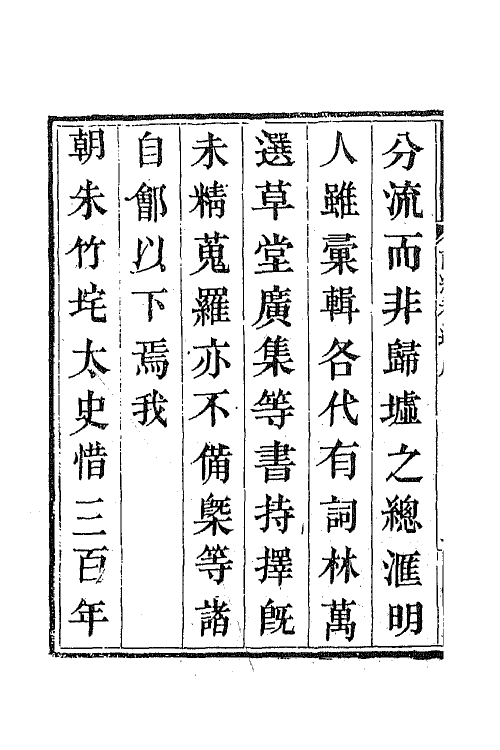 分流而非歸墟之總滙明
人雖彚輯各代有詞林萬
選草堂廣集等書持擇旣
未精蒐羅亦不備槩等諸
自鄶以下焉我
朝朱竹垞太史惜三百年